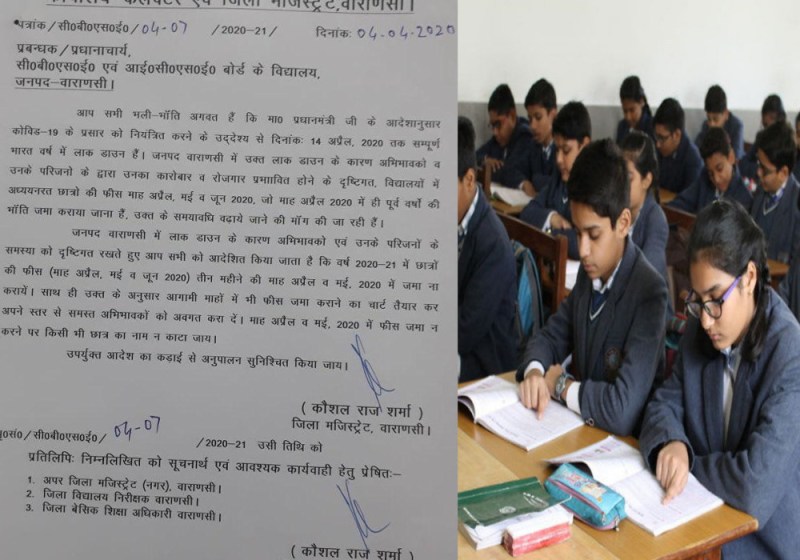 कार्यालय कलेक्टर एवं जिला मजिस्ट्रेट,वाराणसी।
पत्रांक/सी0बी0एस0ई0/04-07 /2020-21/ दिनांकः 04.04.2020
प्रबन्धक/प्रधानाचार्य,
सी0बी0एस0ई0 एवं आई0सी0एस0ई0 बोर्ड के विद्यालय,
जनपद-वाराणसी।
आप सभी भली-भाँति अवगत हैं कि मा0 प्रधानमंत्री जी के आदेशानुसार
कोविड-19 के प्रसार को नियंत्रित करने के उद्देश्य से दिनांकः 14 अप्रैल, 2020 तक सम्पूर्ण
भारत वर्ष में लाक डाउन हैं। जनपद वाराणसी में उक्त लाक डाउन के कारण अभिभावको व
उनके परिजनो के द्वारा उनका कारोबार व रोजगार प्रभाावित होने के दृष्टिगत, विद्यालयों में
अध्ययनरत छात्रो की फीस माह अप्रैल, मई व जून 2020, जो माह अप्रैल 2020 में ही पूर्व वर्षो की
भाँति जमा कराया जाना हैं, उक्त के समयावधि बढ़ाये जाने की माँग की जा रही हैं।
जनपद वाराणसी में लाक डाउन के कारण अभिभावको एवं उनके परिजनों के
समस्या को दृष्टिगत रखते हुए आप सभी को आदेशित किया जाता है कि वर्ष 2020-21 में छात्रों
की फीस (माह अप्रैल, मई व जून 2020) तीन महीने की माह अप्रैल व मई, 2020 में जमा ना
करायें। साथ ही उक्त के अनुसार आगामी माहों में भी फीस जमा कराने का चार्ट तैयार कर
अपने स्तर से समस्त अभिभावकों को अवगत करा दें। माह अप्रैल व मई, 2020 में फीस जमा न
करने पर किसी भी छात्र का नाम न काटा जाय।
उपर्युक्त आदेश का कड़ाई से अनुपालन सुनिश्चित किया जाय।
( कौशल राज शर्मा )
जिला मजिस्ट्रेट, वाराणसी।
पृ0सं0/सी0बी0एस0ई0/ 04-07 /2020-21 उसी तिथि को
प्रतिलिपिः निम्नलिखित को सूचनार्थ एवं आवश्यक कार्यवाही हेतु प्रेषितः-
1. अपर जिला मजिस्ट्रेट (नगर), वाराणसी।
2. जिला विद्यालय निरीक्षक वाराणसी।
3. जिला बेसिक शिक्षा अधिकारी वाराणसी।
( कौशल राज शर्मा )